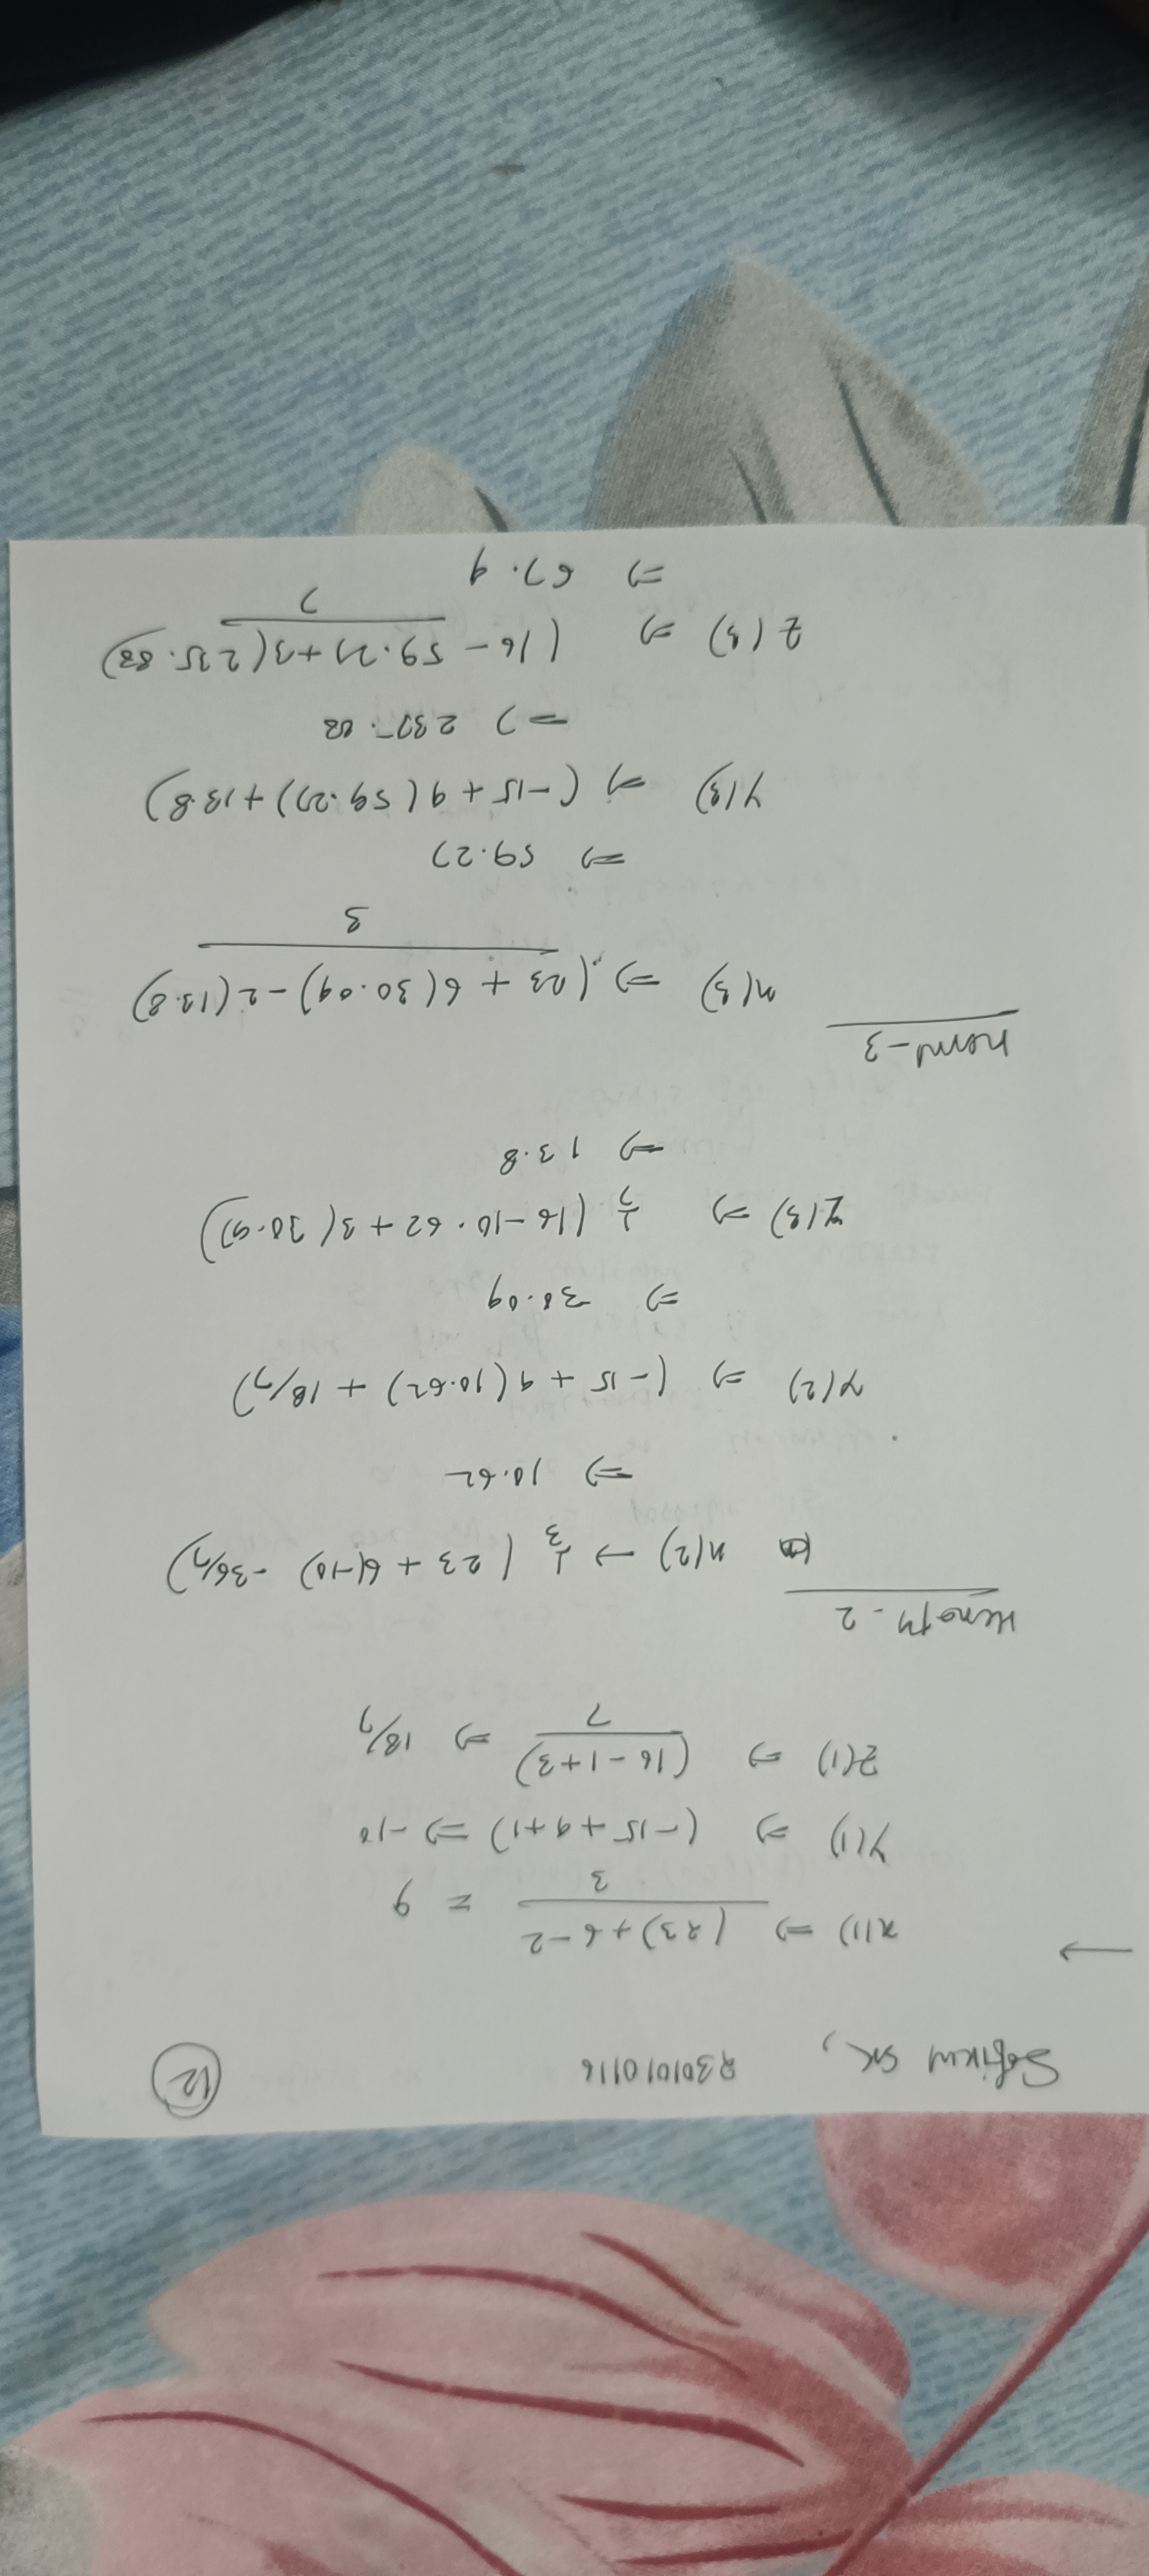 Sofikul SK, R301010116 12
x(1) ⇒ ((23)+6-2)/3 = 9
y(1) ⇒ (-15+4+1) ⇒ -10
z(1) ⇒ (16-1+3)/7 ⇒ 18/7
-2
x(2) → 1/3 (23 + 6(-10) - 36/7)
⇒ 10.62
y(2) ⇒ (-15 + 4(10.62) + 18/7)
⇒ 30.09
z(3) ⇒ 1/7 (16-10.62 + 3(30.9))
⇒ 13.8
-3
x(3) ⇒ (23 + 6(30.09) - 2(13.8)/3
⇒ 59.27
y(3) ⇒ (-15 + 4(59.27) + 13.8)
⇒ 237.82
z(3) ⇒ (16 - 59.27 + 3(235.88)/7
⇒ 67.9